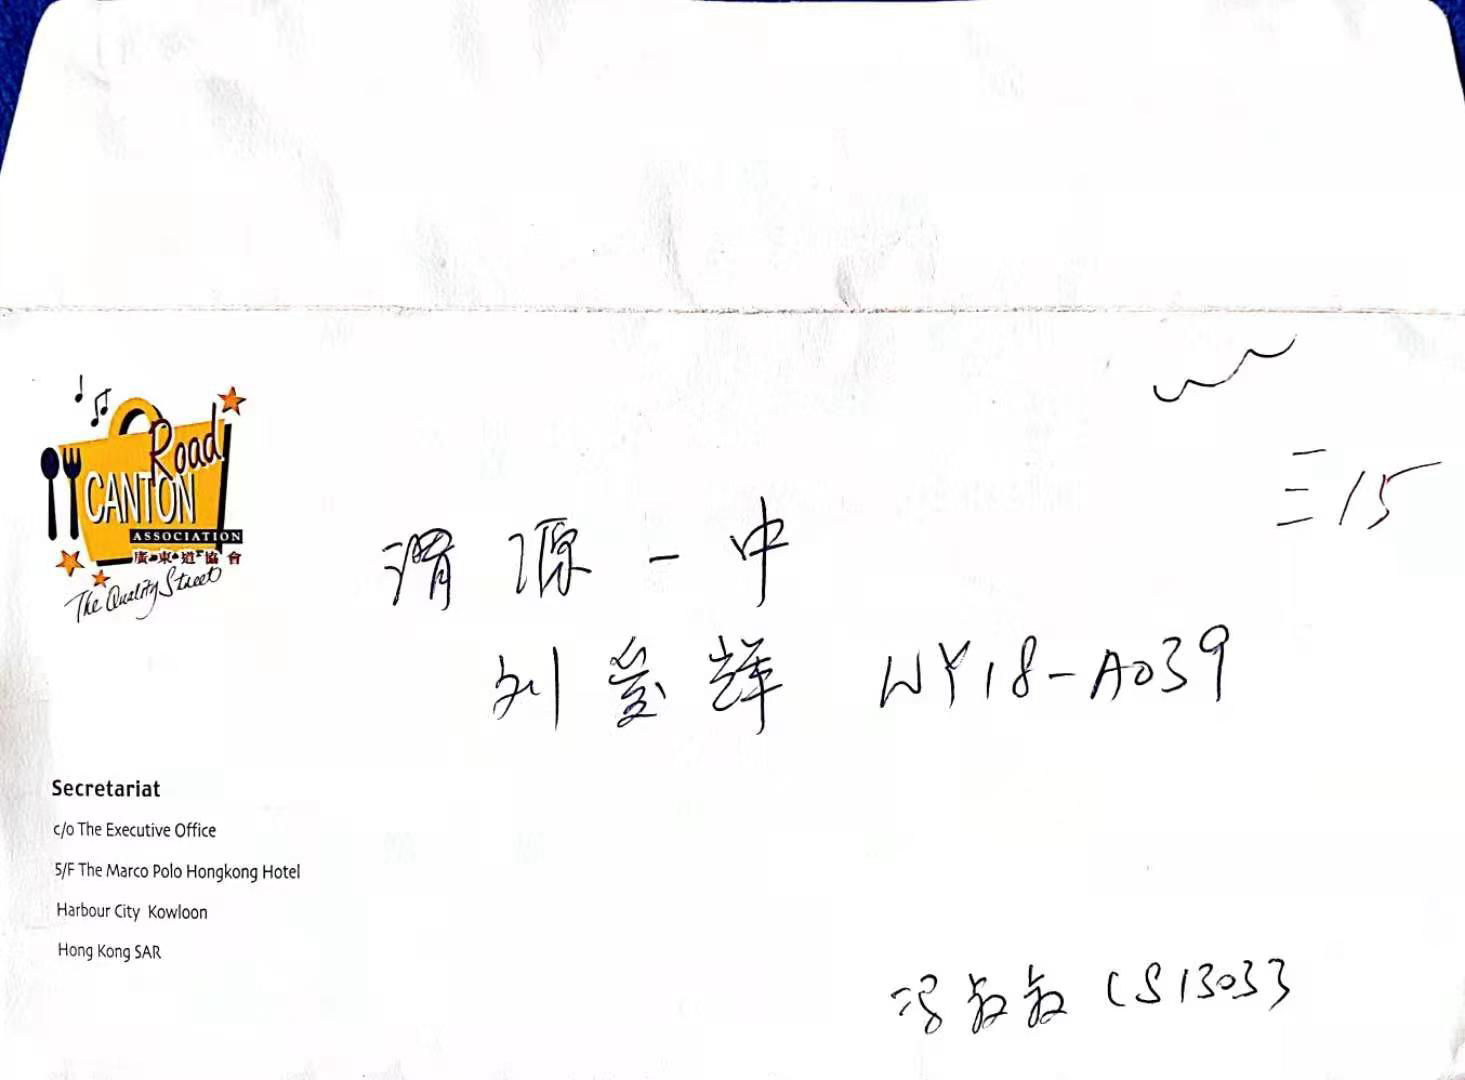 三15
Road
CANTON
ASSOCIATION
廣東道協會
The Quality Street
渭源一中
刘爱辉 WY18-A039
Secretariat
c/o The Executive Office
5/F The Marco Polo Hongkong Hotel
Harbour City Kowloon
Hong Kong SAR
冯敏敏 CS13033